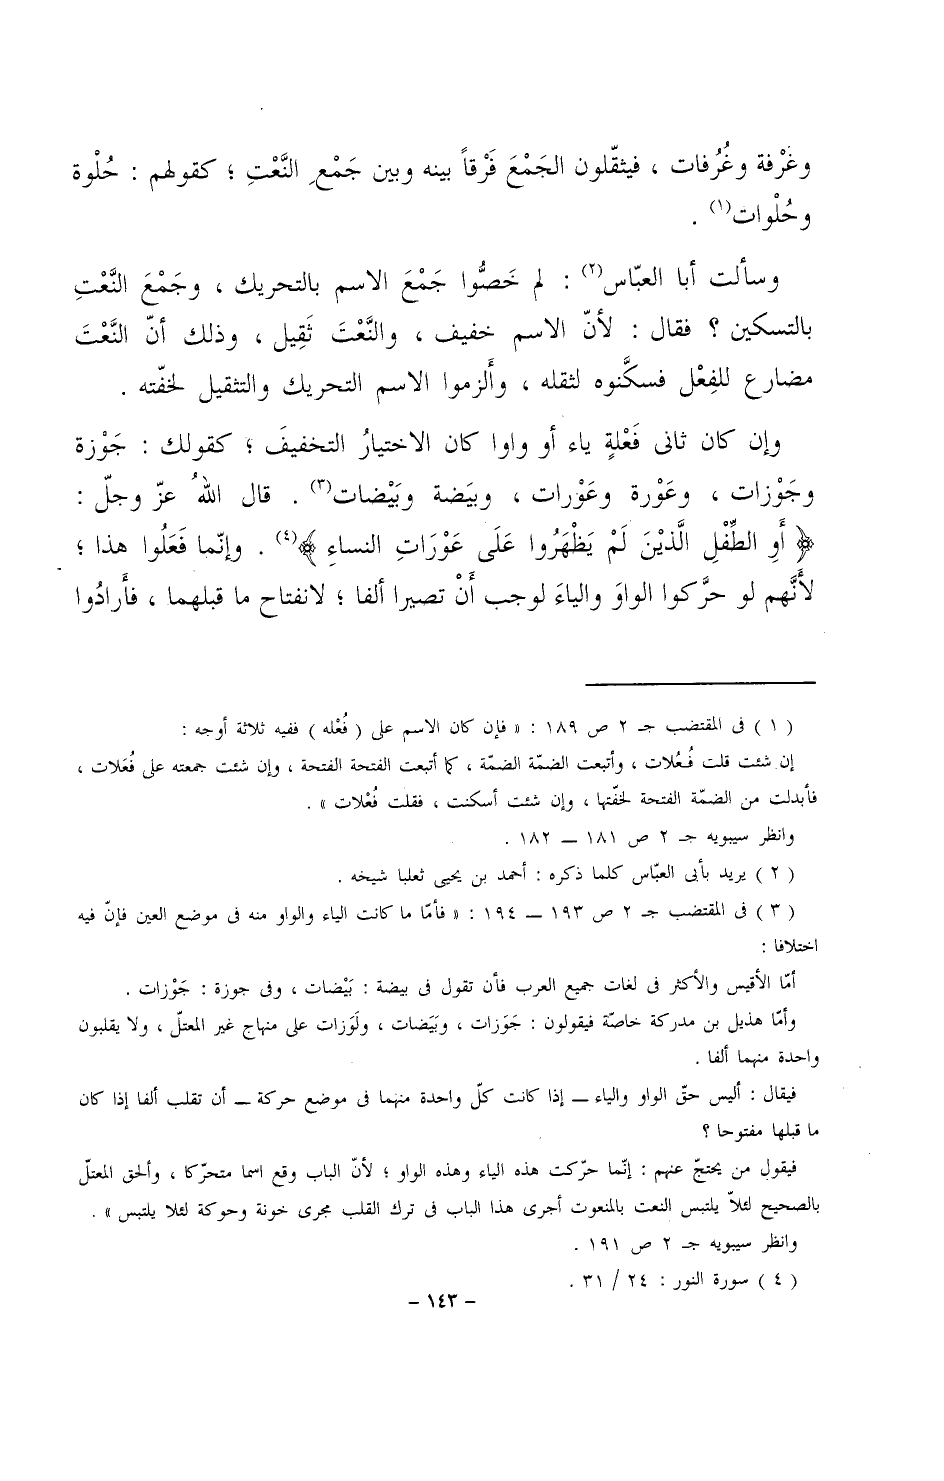 وغُرْفة وغُرُفات ، فيثقّلون الجَمْعَ فَرْقاً بينه وبين جَمْعِ النَّعْتِ ؛ كقولهم : حُلْوة
وحُلْوات(١) .
وسألت أبا العبّاس(٢) : لم خَصُّوا جَمْعَ الاسم بالتحريك ، وجَمْعَ النَّعْتِ
بالتسكين ؟ فقال : لأنّ الاسم خفيف ، والنَّعْتَ ثَقِيل ، وذلك أنّ النَّعْتَ
مضارع للفِعْل فسكَّنوه لثقله ، وأَلزموا الاسم التحريك والتثقيل لخفّته .
وإن كان ثانى فَعْلةٍ ياء أو واوا كان الاختيارُ التخفيفَ ؛ كقولك : جَوْزة
وجَوْزات ، وعَوْرة وعَوْرات ، وبيَضة وبَيْضات(٣) . قال اللهُ عزّ وجلّ :
﴿ أَوِ الطِّفْلِ الَّذيْنَ لَمْ يَظْهَرُوا عَلَى عَوْرَاتِ النساءِ ﴾(٤) . وإنّما فَعَلُوا هذا ؛
لأَنَّهم لو حرَّكوا الواوَ والياءَ لوجب أَنْ تصيرا ألفا ؛ لانفتاح ما قبلهما ، فأَرادُوا
( ١ ) فى المقتضب جـ ٢ ص ١٨٩ : « فإن كان الاسم على ( فُعْله ) ففيه ثلاثة أوجه :
إن شئت قلت فُعُلات ، وأتبعت الضمّة الضمّة ، كما أتبعت الفتحة الفتحة ، وإن شئت جمعته على فُعَلات ،
فأبدلت من الضمّة الفتحة لخفّتها ، وإن شئت أسكنت ، فقلت فُعْلات » .
وانظر سيبويه جـ ٢ ص ١٨١ ــ ١٨٢ .
( ٢ ) يريد بأبى العبّاس كلما ذكره : أحمد بن يحيى ثعلبا شيخه .
( ٣ ) فى المقتضب جـ ٢ ص ١٩٣ ــ ١٩٤ : « فأمّا ما كانت الياء والواو منه فى موضع العين فإنّ فيه
اختلافا :
أمّا الأقيس والأكثر فى لغات جميع العرب فأن تقول فى بيضة : بَيْضات ، وفى جوزة : جَوْزات .
وأمّا هذيل بن مدركة خاصّة فيقولون : جَوَزات ، وبَيَضات ، ولَوَزات على منهاج غير المعتلّ ، ولا يقلبون
واحدة منهما ألفا .
فيقال : أليس حقّ الواو والياء ــ إذا كانت كلّ واحدة منهما فى موضع حركة ــ أن تقلب ألفا إذا كان
ما قبلها مفتوحا ؟
فيقول من يحتجّ عنهم : إنّما حرّكت هذه الياء وهذه الواو ؛ لأنّ الباب وقع اسما متحرّكا ، وألحق المعتلّ
بالصحيح لئلاّ يلتبس النعت بالمنعوت أجرى هذا الباب فى ترك القلب مجرى خونة وحوكة لئلا يلتبس » .
وانظر سيبويه جـ ٢ ص ١٩١ .
( ٤ ) سورة النور : ٢٤ / ٣١ .
- ١٤٣ -